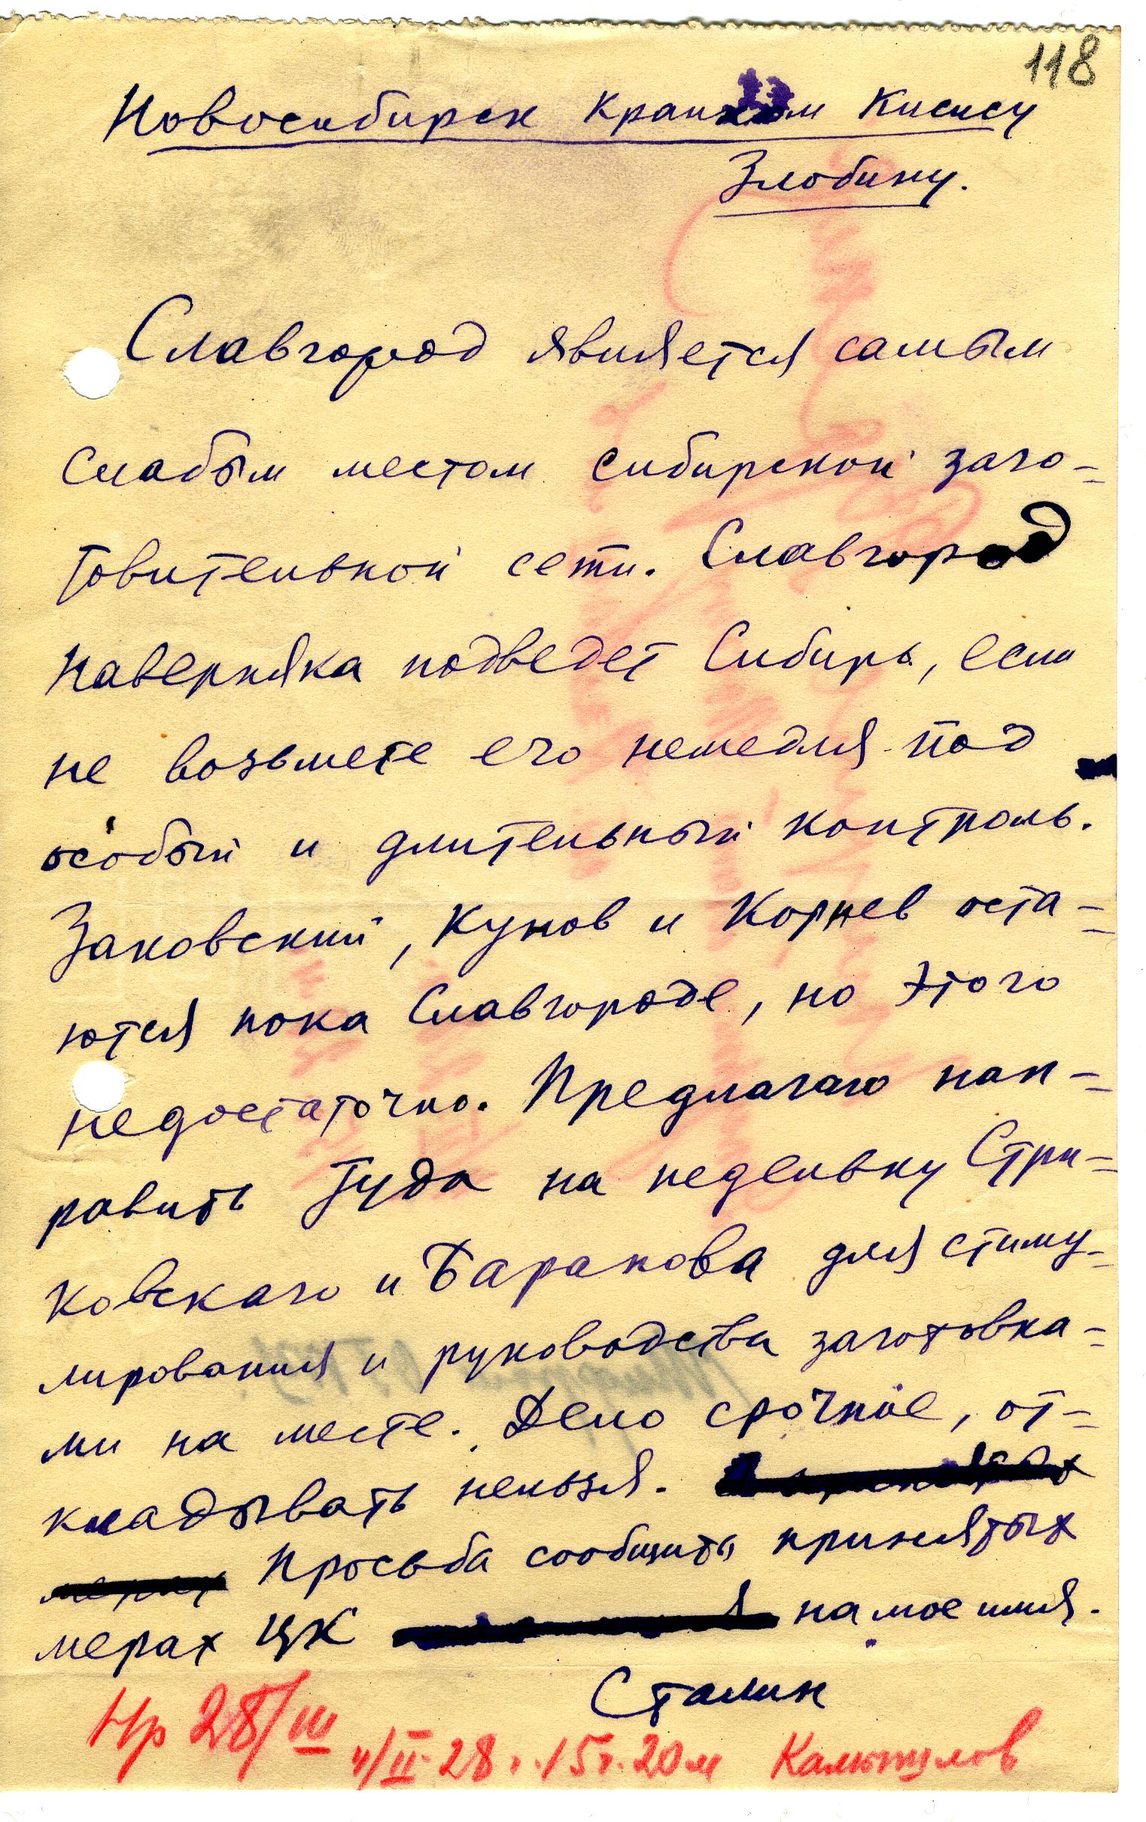 118
Новосибирск Крайком Кисису
Злобину.
Славгород является самым
слабым местом сибирской заго-
товительной сети. Славгород
наверняка подведет Сибирь, если
не возьмете его немедля под
особый и длительный контроль.
Заковский, Кунов и Корнев оста-
ются пока Славгороде, но этого
недостаточно. Предлагаю нап-
равить туда на недельку Стри-
ковскаго и Баранова для стиму-
лирования и руководства заготовка-
ми на месте. Дело срочное, от-
кладывать нельзя.
Просьба сообщить принятых
мерах ЦК на мое имя.
Сталин
Нр 28/III
4/II-28 г. 15ч. 20м